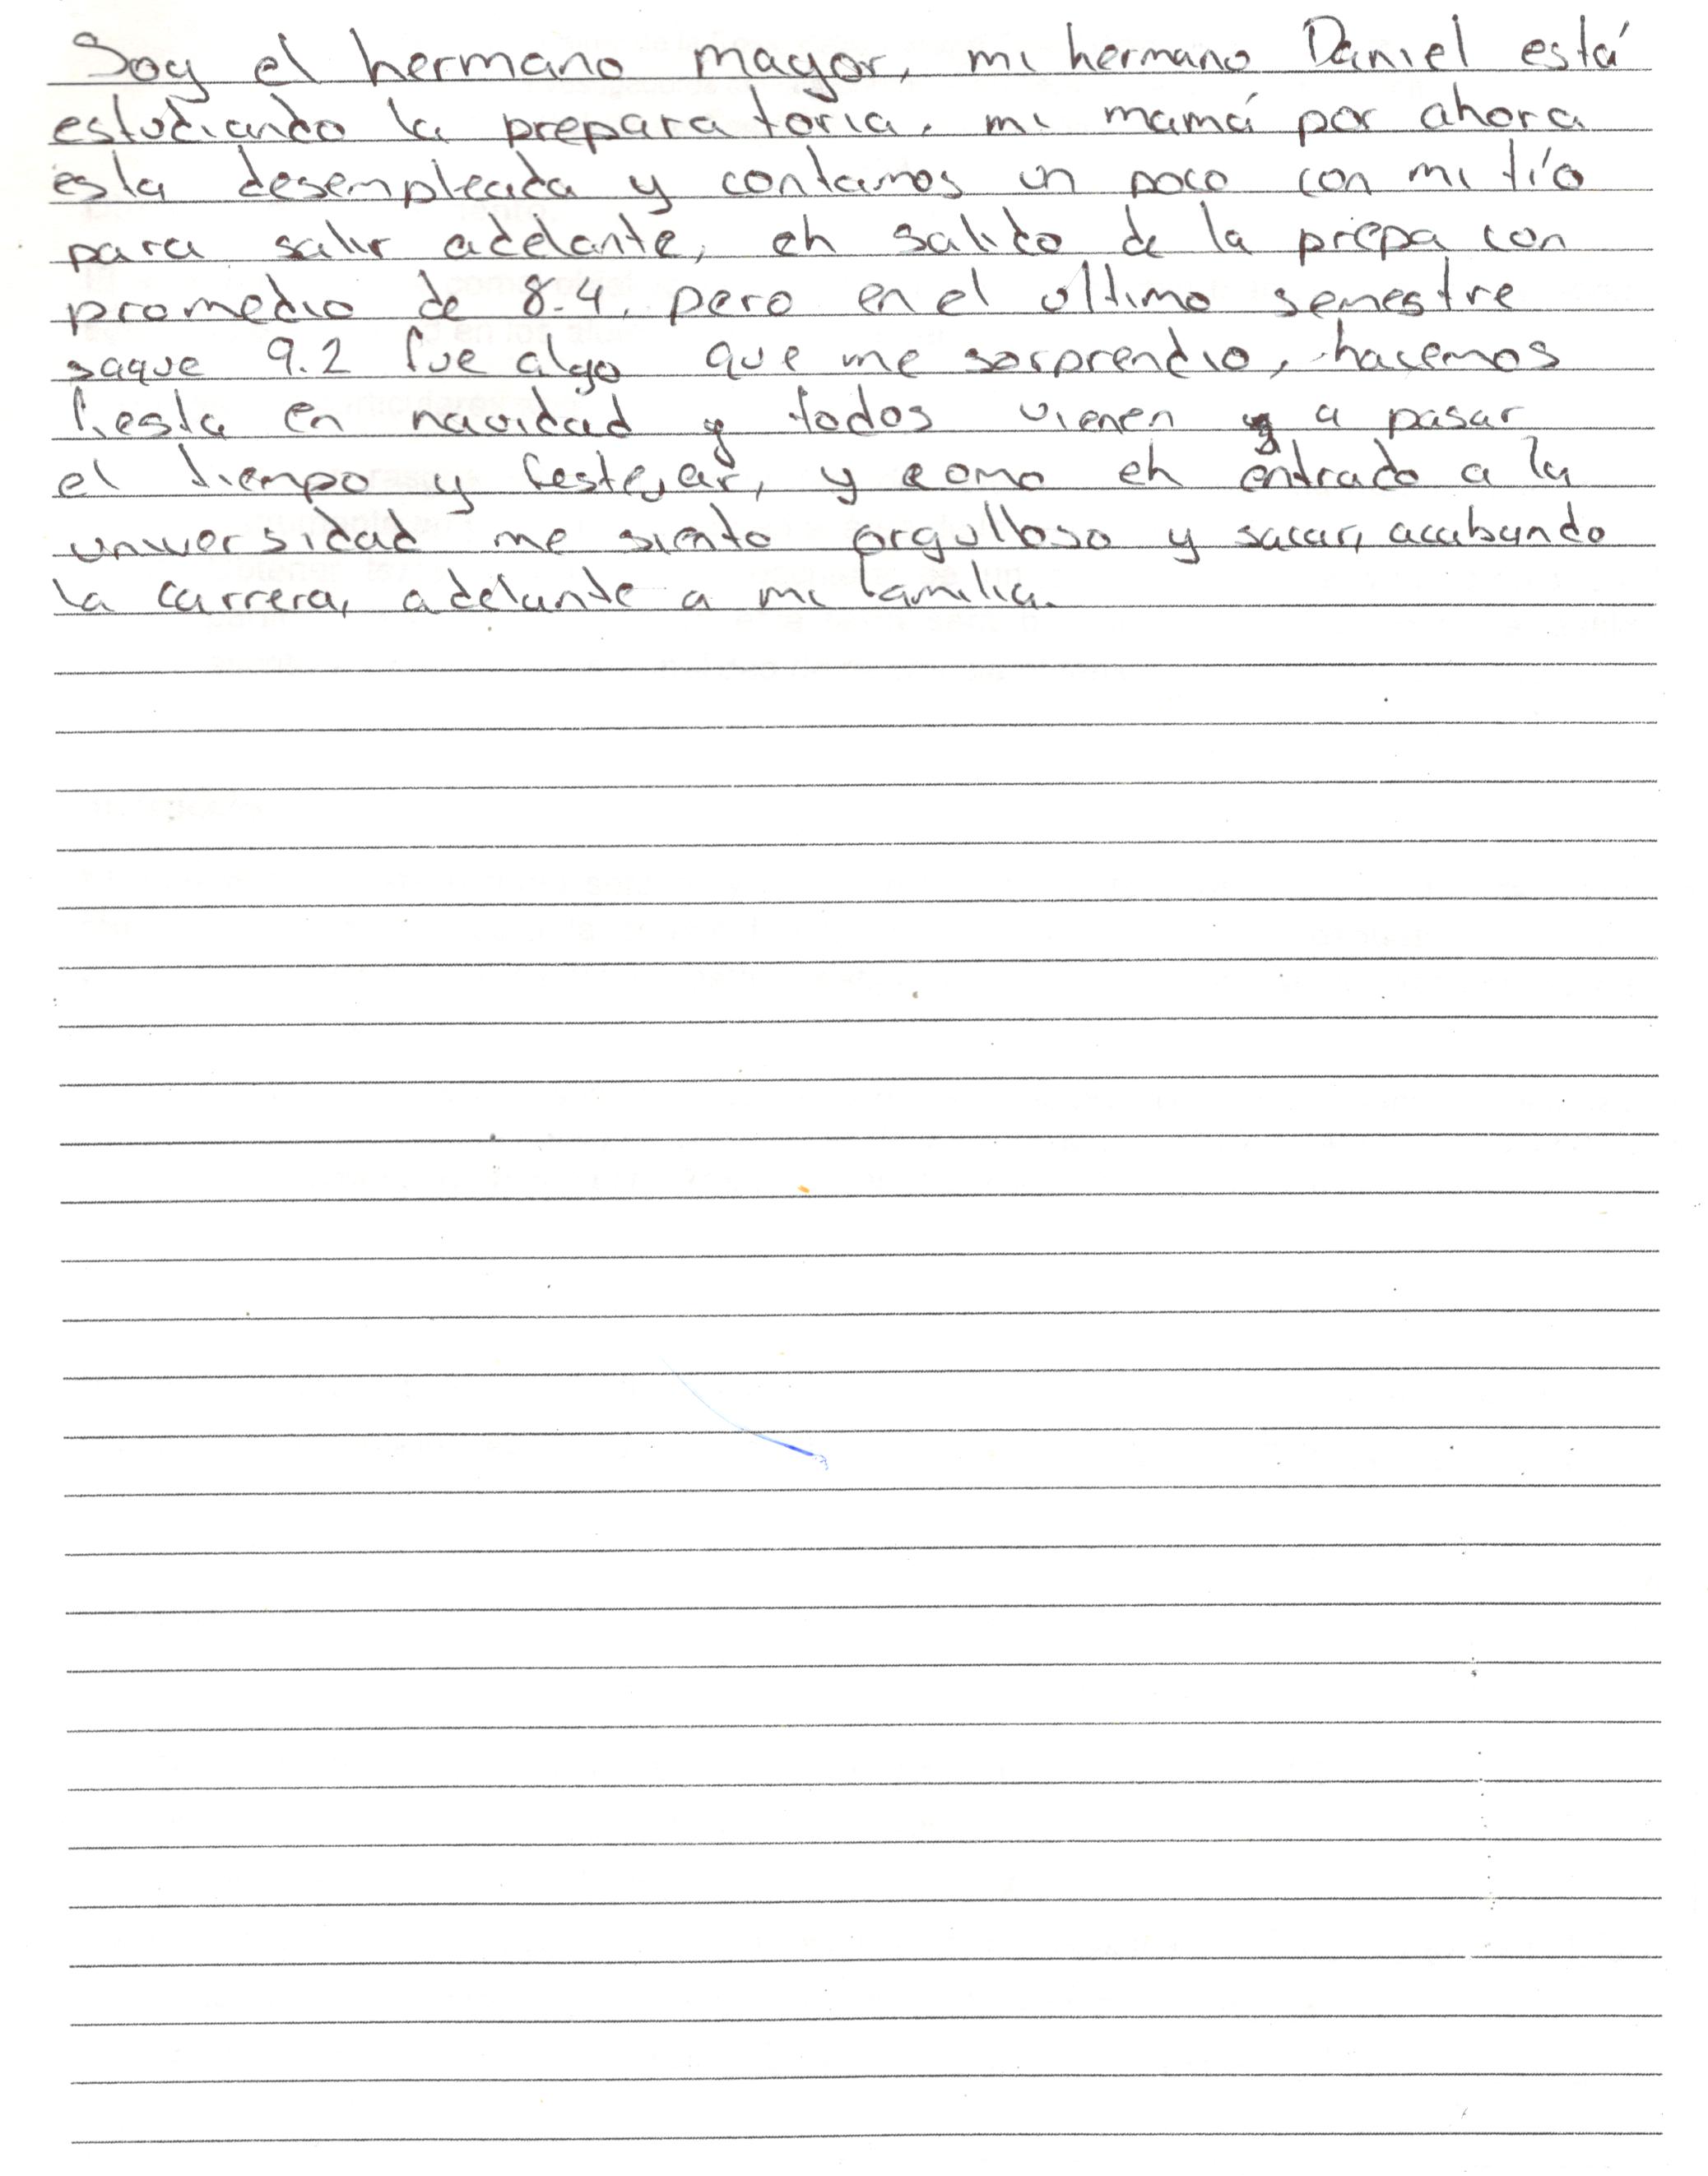 Soy el hermano mayor, mi hermano Daniel está
estudiando la preparatoria, mi mamá por ahora
esta desempleada y contamos un poco con mi tío
para salir adelante, eh salido de la prepa con
promedio de 8.4, pero en el ultimo semestre
saque 9.2 fue algo que me sorprendio, hacemos
fiesta en navidad y todos vienen a pasar
el tiempo y festejar, y como eh entrado a la
universidad me siento orgulloso y sacar, acabando
la carrera, adelante a mi familia.